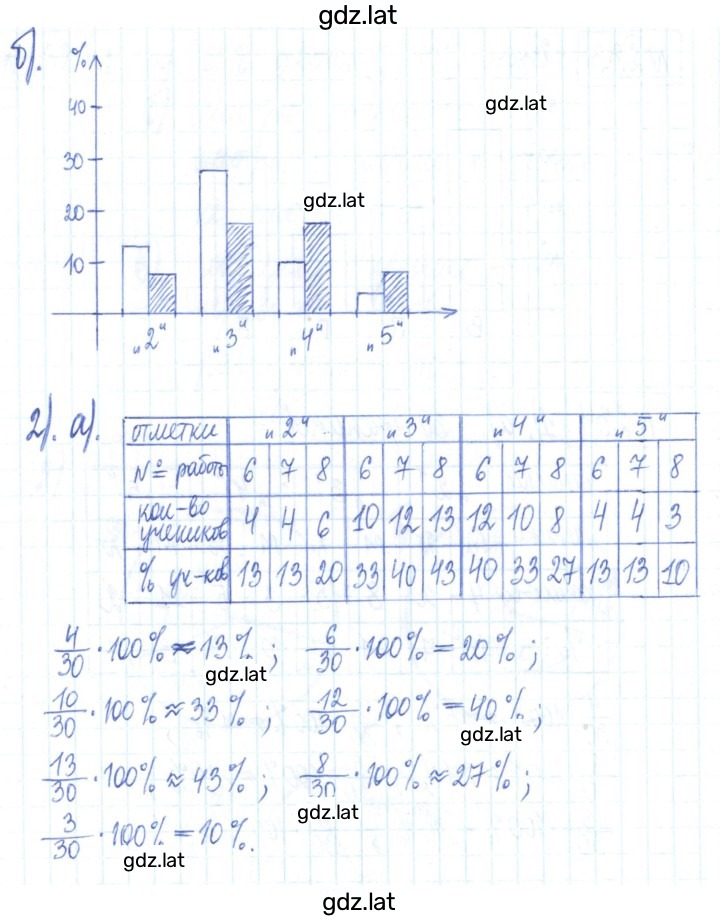 gdz.lat
б). %
gdz.lat
40
30
gdz.lat
20
10
„2“ „3“ „4“ „5“
2). а). отметки „2“ „3“ „4“ „5“
№ работы 6 7 8 6 7 8 6 7 8 6 7 8
кол-во учеников 4 4 6 10 12 13 12 10 8 4 4 3
% уч-ков 13 13 20 33 40 43 40 33 27 13 13 10
4/30 · 100% ≈ 13%; 6/30 · 100% = 20%;
gdz.lat
10/30 · 100% ≈ 33%; 12/30 · 100% = 40%;
gdz.lat
13/30 · 100% ≈ 43%; 8/30 · 100% ≈ 27%;
gdz.lat
3/30 · 100% = 10%.
gdz.lat
gdz.lat